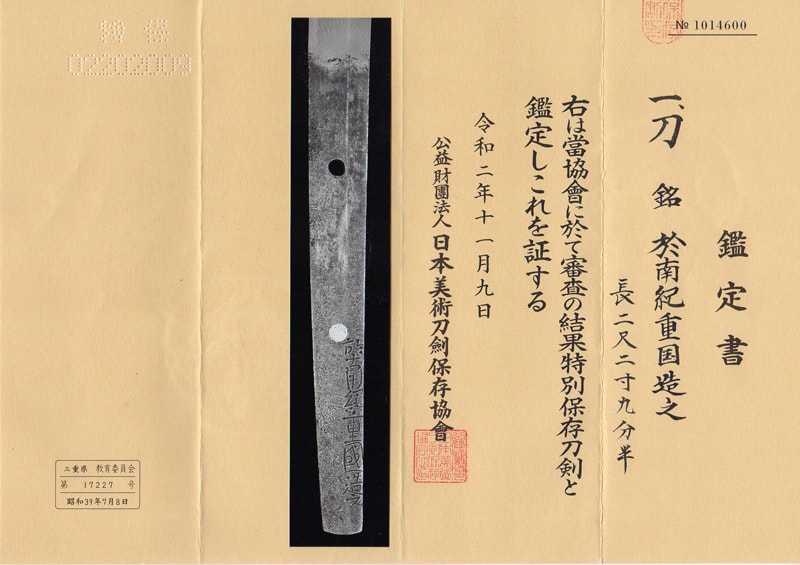 № 1014600
鑑定書
一、刀 銘 於南紀重国造之
長二尺二寸九分半
右は當協會に於て審査の結果特別保存刀剣と
鑑定しこれを証する
令和二年十一月九日
公益財團法人 日本美術刀劍保存協會
於南紀重國造之
02202009
三重県 教育委員会
第 17227 号
昭和39年7月8日